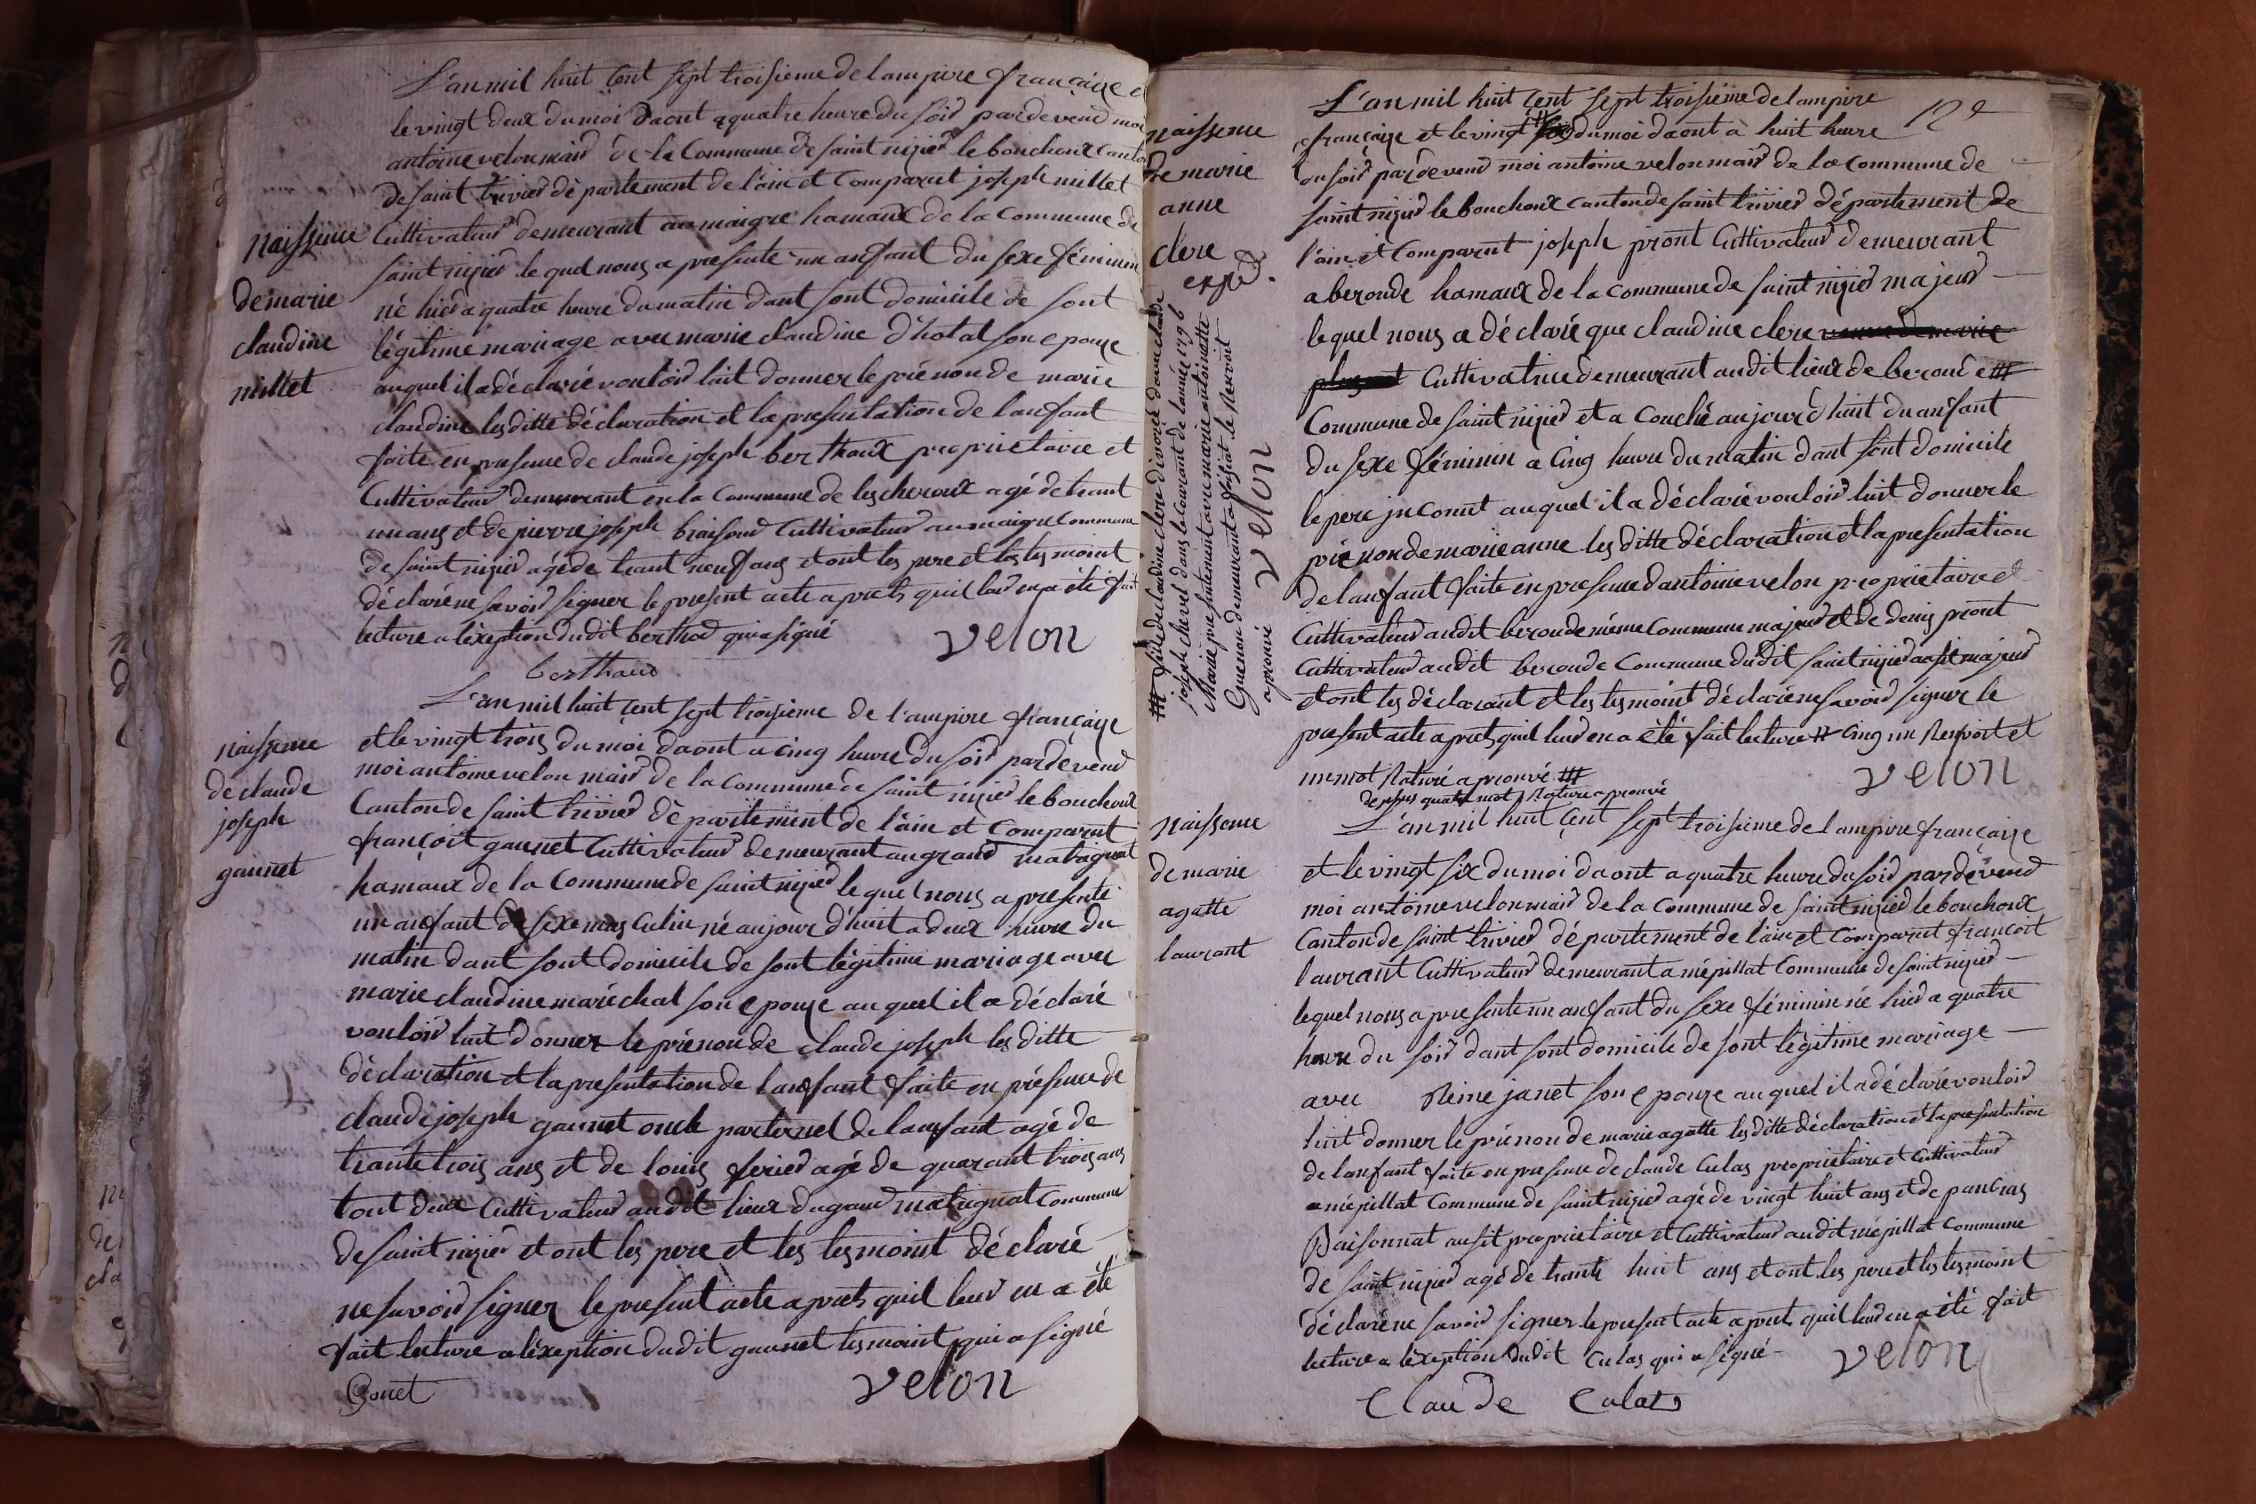 L'an mil huit cent sept troisieme de lampire française
le vingt deux du moi daout a quatre heure du soir pardevend moi
antoine velon maire de la Commune de saint nizier le bouchoux canton
de saint trivier département de l'ain et Comparut joseph millet
naissence
Cultivateur demeurant au maigre hamaux de la Commune de
saint nizier lequel nous a presenté un anfant du sexe féminin
de marie
né hier a quatre heure du matin dant sont domicile de sont
claudine
légitime mariage avec marie claudine d'hotal son epouze
millet
auquel il a déclaré vouloir luit donner le prénon de marie
claudine les ditte déclaration et la presentation de lanfant
faite en presence de claude joseph berthaux proprietaire et
Cultivateur demeurant en la Commune de lescheroux agé de trant
un ans et de pierre joseph Cultivateur au maigre Commune
de saint nizier agé de trant neuf ans et ont les pere et les tesmoint
déclaré ne savoir signer le present acte a prets quil leur en a été fait
lecture a l'exeption dudit berthod qui a signé
velon
berthaud
L'an mil huit cent sept troisieme de l'ampire française
naissence
et le vingt trois du moi daout a cinq heure du soir pardevend
de claude
moi antoine velon maire de la Commune de saint nizier le bouchoux
joseph
Canton de saint trivier département de l'ain et Comparut
gaunet
françoit gaunet Cultivateur demeurant au grand matagnat
hamaux de la Commune de saint nizier lequel nous a presenté
un anfant du sexe masculin né aujourd'huit a deux heure du
matin dant sont domicile de sont légitime mariage avec
marie claudine maréchal son epouze auquel il a déclaré
vouloir luit donner le prénon de claude joseph les ditte
déclaration et la presentation de lanfant faite en présence de
claude joseph gaunet oncle parternel de lanfant agé de
trante trois ans et de louis ferier agé de quarant trois ans
tout deux Cultivateur audit lieux du grand matagnat Commune
de saint nizier et ont les pere et les tesmoint déclaré
ne savoir signer le present acte aprets quil leur en a été
fait lecture a léxeption dudit gaunet tesmoint qui a signé
Gonet
velon
L'an mil huit cent sept troisieme de lampire
naissence
française et le vingt du moi daout à huit heure
de marie
du soir pardevend moi antoine velon maire de la Commune de
anne
saint nizier le bouchoux canton de saint trivier département de
clere
l'ain et Comparut joseph piront Cultivateur demeurant
a beronde hamaux de la Commune de saint nizier majeur
lequel nous a déclaré que claudine clere
Cultivatrice demeurant audit lieux de beronde ###
Commune de saint nizier et a Couché aujourd'huit du anfant
du sexe féminin a Cinq heure du matin dant sont domicile
le pere jnconut auquel il a déclaré vouloir luit donner le
prénon de marie anne les ditte déclaration et la presentation
de lanfant faite en presence dantoine velon proprietaire et
Cultivateur audit beronde même Commune majeur et de denis piront
Cultivateur audit beronde Commune dudit saint nizier ausit majeur
et ont les déclarant et les tesmoint déclaré ne savoir signer le
present acte aprets quil leur en a été fait lecture # Cinq un Renvoit et
un mot Raturé aprouvé ###
velon
de plus quatre mot Rature aprouvé
### fille de claudine clere divorcé daunclaude
joseph chevel dans le Courant de lannée 1796
Marié presentement avec marie antoinette
Guenon demeurant a le Renvoit
aprouvé velon
L'an mil huit cent sept troisieme de lampire française
naissence
et le vingt six du moi daout a quatre heure du soir pardevend
de marie
moi antoine velon maire de la Commune de saint nizier le bouchoux
agatte
Canton de saint trivier département de l'ain et Comparut françoit
laurant
laurant Cultivateur demeurant a mépillat Commune de saint nizier
lequel nous a presenté un anfant du sexe féminin née hier a quatre
heure du soir dant sont domicile de sont légitime mariage
avec Reine janet son epouze auquel il a déclaré vouloir
luit donner le prénon de marie agatte les ditte déclaration et la presentation
de lanfant faite en presence de claude Culas proprietaire et Cultivateur
a mépillat Commune de saint nizier agé de vingt huit ans et de pancras
Baisonnat ausit proprietaire et Cultivateur audit mépillat Commune
de saint nizier agé de trante huit ans et ont les pere et les tesmoint
déclaré ne savoir signer le present acte aprets quil leur en a été fait
lecture a léxeption dudit Culas qui a signé
velon
Claude Culas